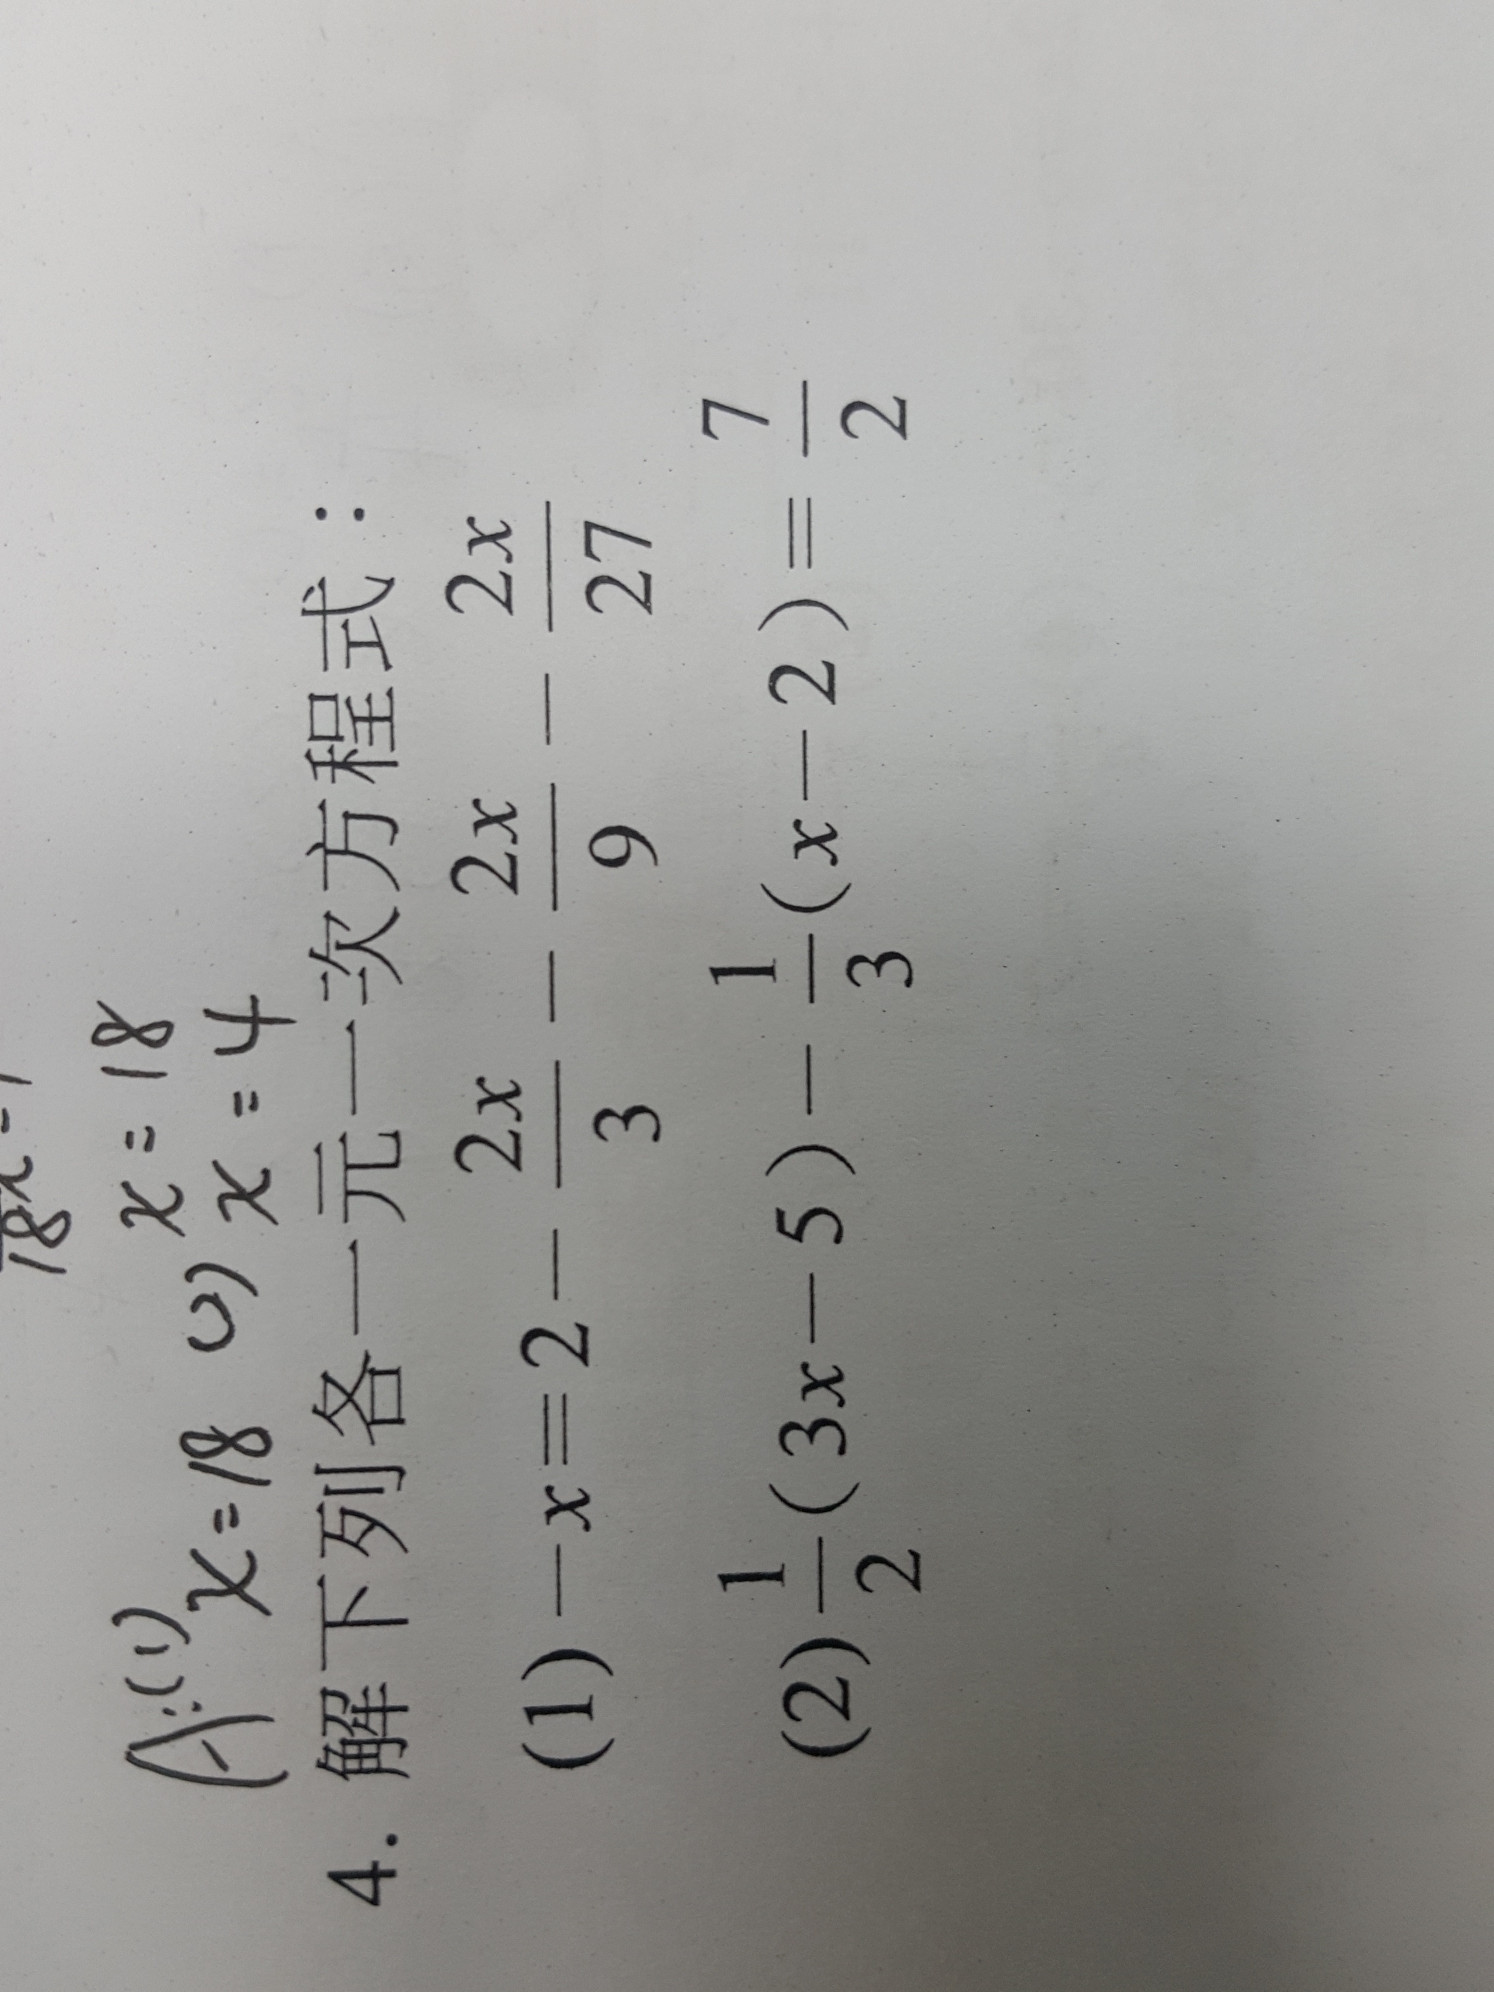 18x=1
x=18
A:(1) x=18 (2) x=4
4. 解下列各一元一次方程式：
(1) -x=2-\frac{2x}{3}-\frac{2x}{9}-\frac{2x}{27}
(2) \frac{1}{2}(3x-5)-\frac{1}{3}(x-2)=\frac{7}{2}